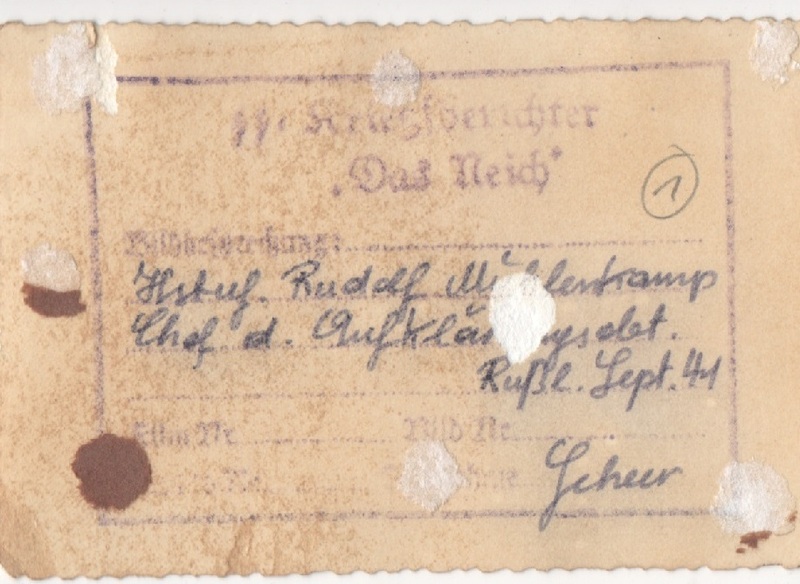 SS-Kriegsberichter
„Das Reich"
1
Bildbeschreibung:
Hstuf. Rudolf Mühlenkamp
Chef d. Aufklärungsabt.
Rußl. Sept. 41
Film Nr. Bild Nr.